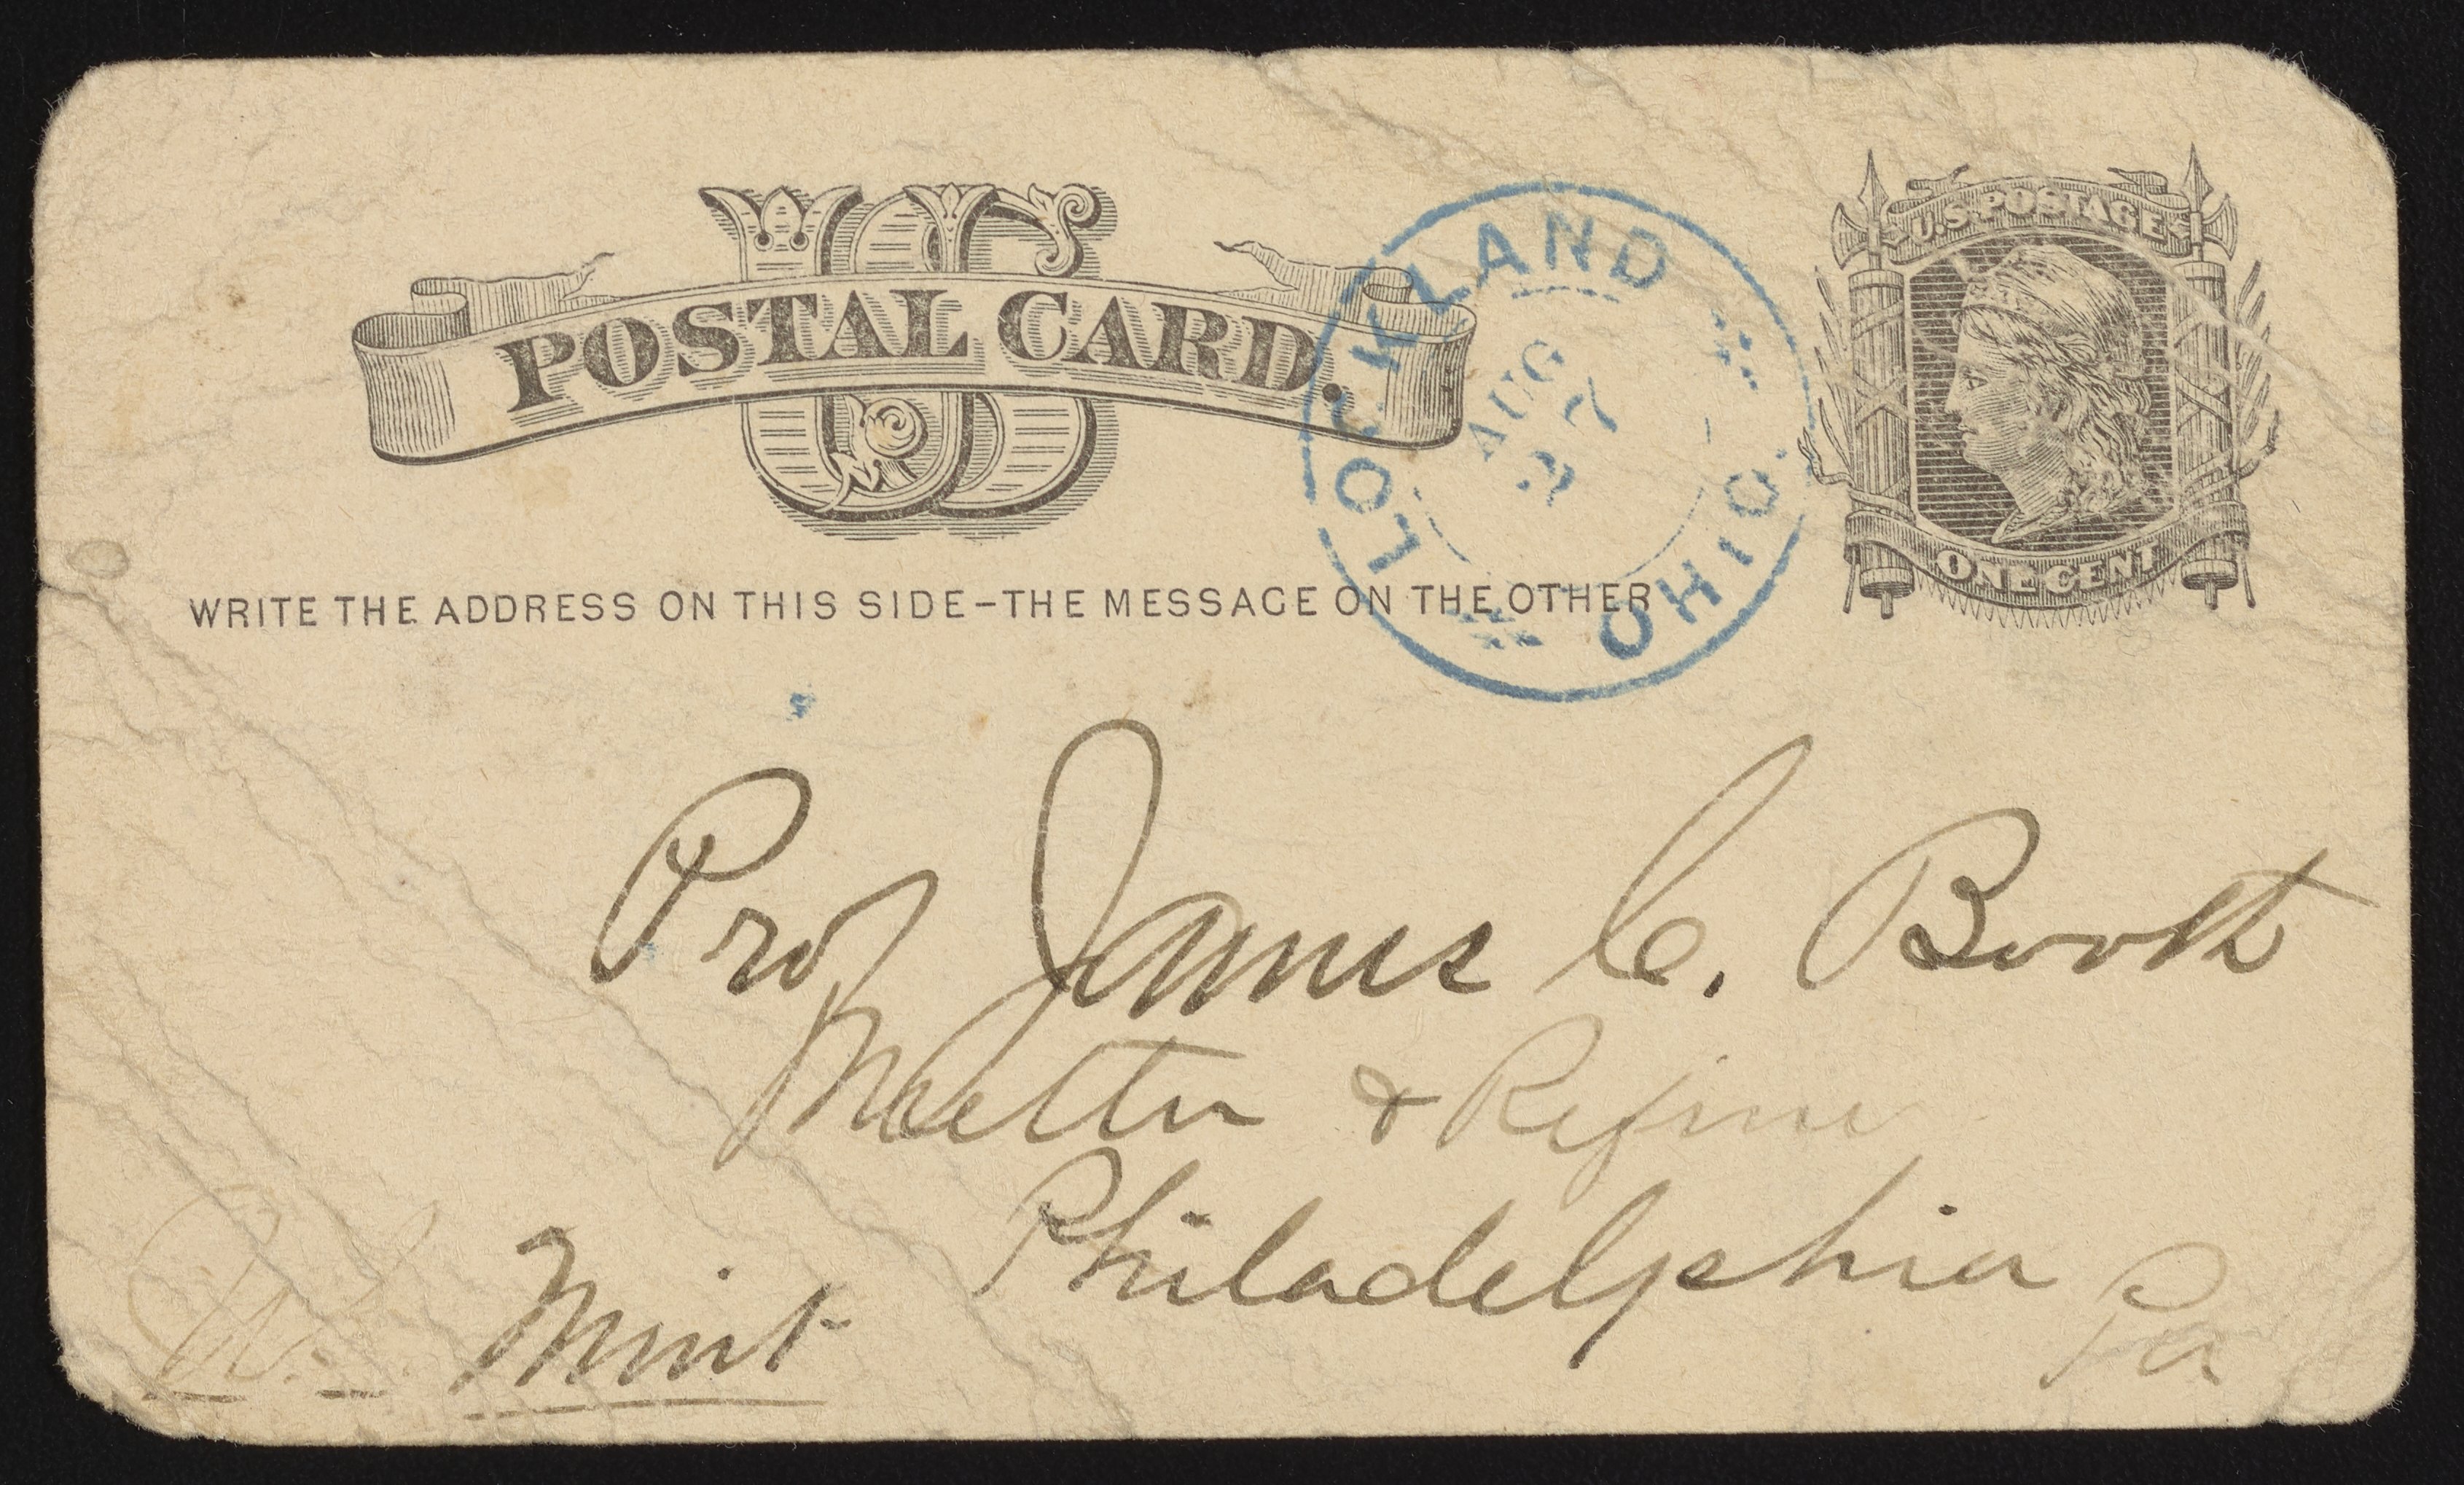 US
POSTAL CARD.
LOCKLAND
OHIO.
AUG
27
U.S. POSTAGE
ONE CENT
WRITE THE ADDRESS ON THIS SIDE-THE MESSAGE ON THE OTHER
Prof James C. Booth
Melter & Refiner
Philadelphia
Pa
U.S. Mint